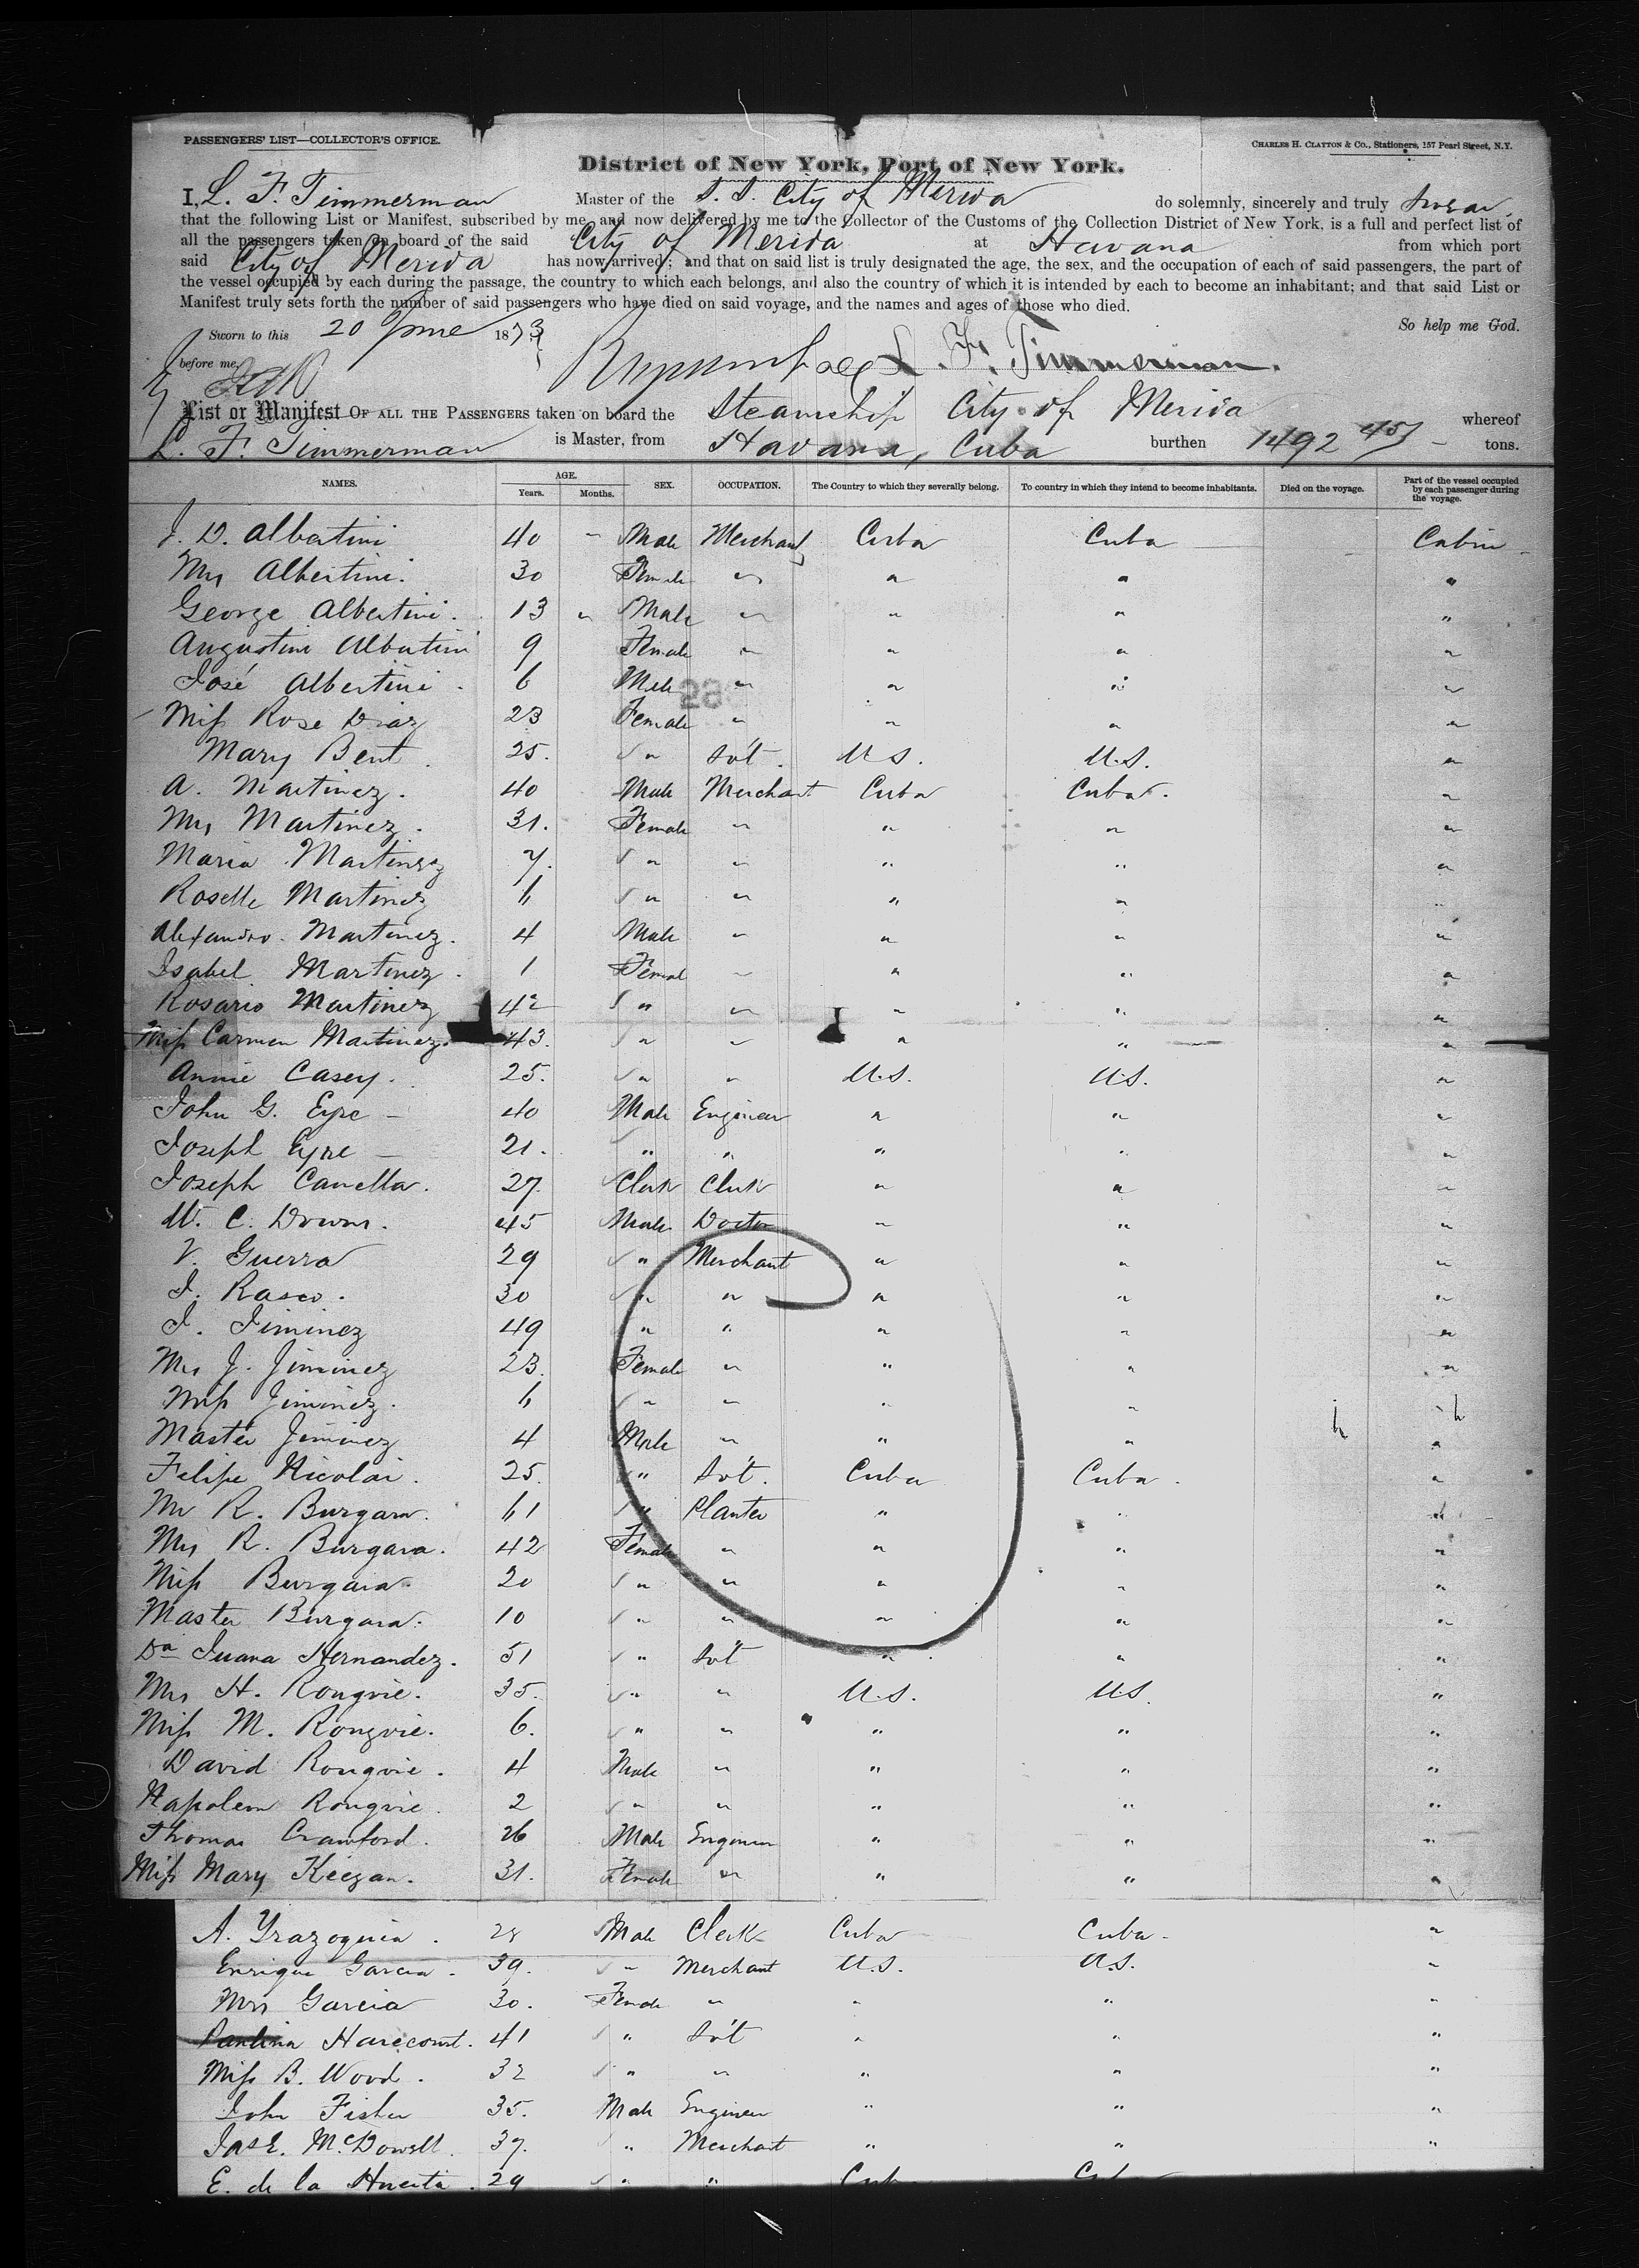 PASSENGERS' LIST—COLLECTOR'S OFFICE.
CHARLES H. CLAYTON & CO., Stationers, 157 Pearl Street, N.Y.
District of New York, Port of New York.
I, L. F. Timmerman Master of the S. S. City of Merida do solemnly, sincerely and truly swear
that the following List or Manifest, subscribed by me, and now delivered by me to the Collector of the Customs of the Collection District of New York, is a full and perfect list of
all the passengers taken on board of the said City of Merida at Havana from which port
said City of Merida has now arrived; and that on said list is truly designated the age, the sex, and the occupation of each of said passengers, the part of
the vessel occupied by each during the passage, the country to which each belongs, and also the country of which it is intended by each to become an inhabitant; and that said List or
Manifest truly sets forth the number of said passengers who have died on said voyage, and the names and ages of those who died.
So help me God.
Sworn to this 20 June 1873
before me,
L. F. Timmerman.
List or Manifest OF ALL THE PASSENGERS taken on board the Steamship City of Merida whereof
L. F. Timmerman is Master, from Havana, Cuba burthen 1492 45/ tons.
NAMES. AGE. Years. Months. SEX. OCCUPATION. The Country to which they severally belong. To country in which they intend to become inhabitants. Died on the voyage. Part of the vessel occupied by each passenger during the voyage.
J. D. Albertini 40 " Male Merchant Cuba Cuba Cabin
Mrs Albertini. 30 Female " " " "
George Albertini. 13 " Male " " " "
Augustini Albertini 9 Female " " " "
José Albertini. 6 Male " " " "
Miss Rose Diaz 23 Female " " " "
Mary Bent. 25. " Svt. U.S. U.S. "
A. Martinez. 40 Male Merchant Cuba Cuba. "
Mrs Martinez. 31. Female " " " "
Maria Martinez 7. " " " " "
Roselle Martinez 6 " " " "
Alexandro Martinez. 4 Male " " " "
Isabel Martinez. 1 Femal " " " "
Rosario Martinez 42 " " " " "
Miss Carmen Martinez. 43. " " " " "
Annie Casey. 25. " " U.S. U.S. "
John G. Eyre 40 Male Engineer " " "
Joseph Eyre 21. " " " " "
Joseph Canella. 27. Clerk Clerk " " "
W. C. Downs. 45 Male Doctor " " "
V. Guerra 29 " Merchant " " "
J. Rasco. 30 " " " " "
J. Jiminez 49 " " " " "
Mrs J. Jiminez 23. Female " " " "
Miss Jiminez. 6 " " " "
Master Jiminez 4 Male " " " "
Felipe Nicolai. 25. " Svt. Cuba Cuba. "
Mr R. Burgara. 61 " Planter " " "
Mrs R. Burgara. 42 Female " " " "
Miss Burgara 20 " " " " "
Master Burgara. 10 " " " " "
Da Juana Hernandez. 51 " Svt " " "
Mrs H. Rongvie. 35. " " U.S. U.S. "
Miss M. Rongvie. 6. " " " " "
David Rongvie. 4 Male " " " "
Napoleon Rongvie. 2 " " " " "
Thomas Crawford. 26 Male Engineer " " "
Miss Mary Keegan. 31. Female " " " "
A. Yrazoquia. 28 Male Clerk Cuba Cuba. "
Enrique Garcia. 39. " Merchant U.S. U.S. "
Mrs Garcia 30. Female " " " "
Paulina Harecourt. 41 " Svt " " "
Miss B. Wood. 32 " " " " "
John Fisher 35. Male Engineer " " "
Jas E. McDowell. 37. " Merchant " " "
E. de la Huerta. 29 " " Cuba